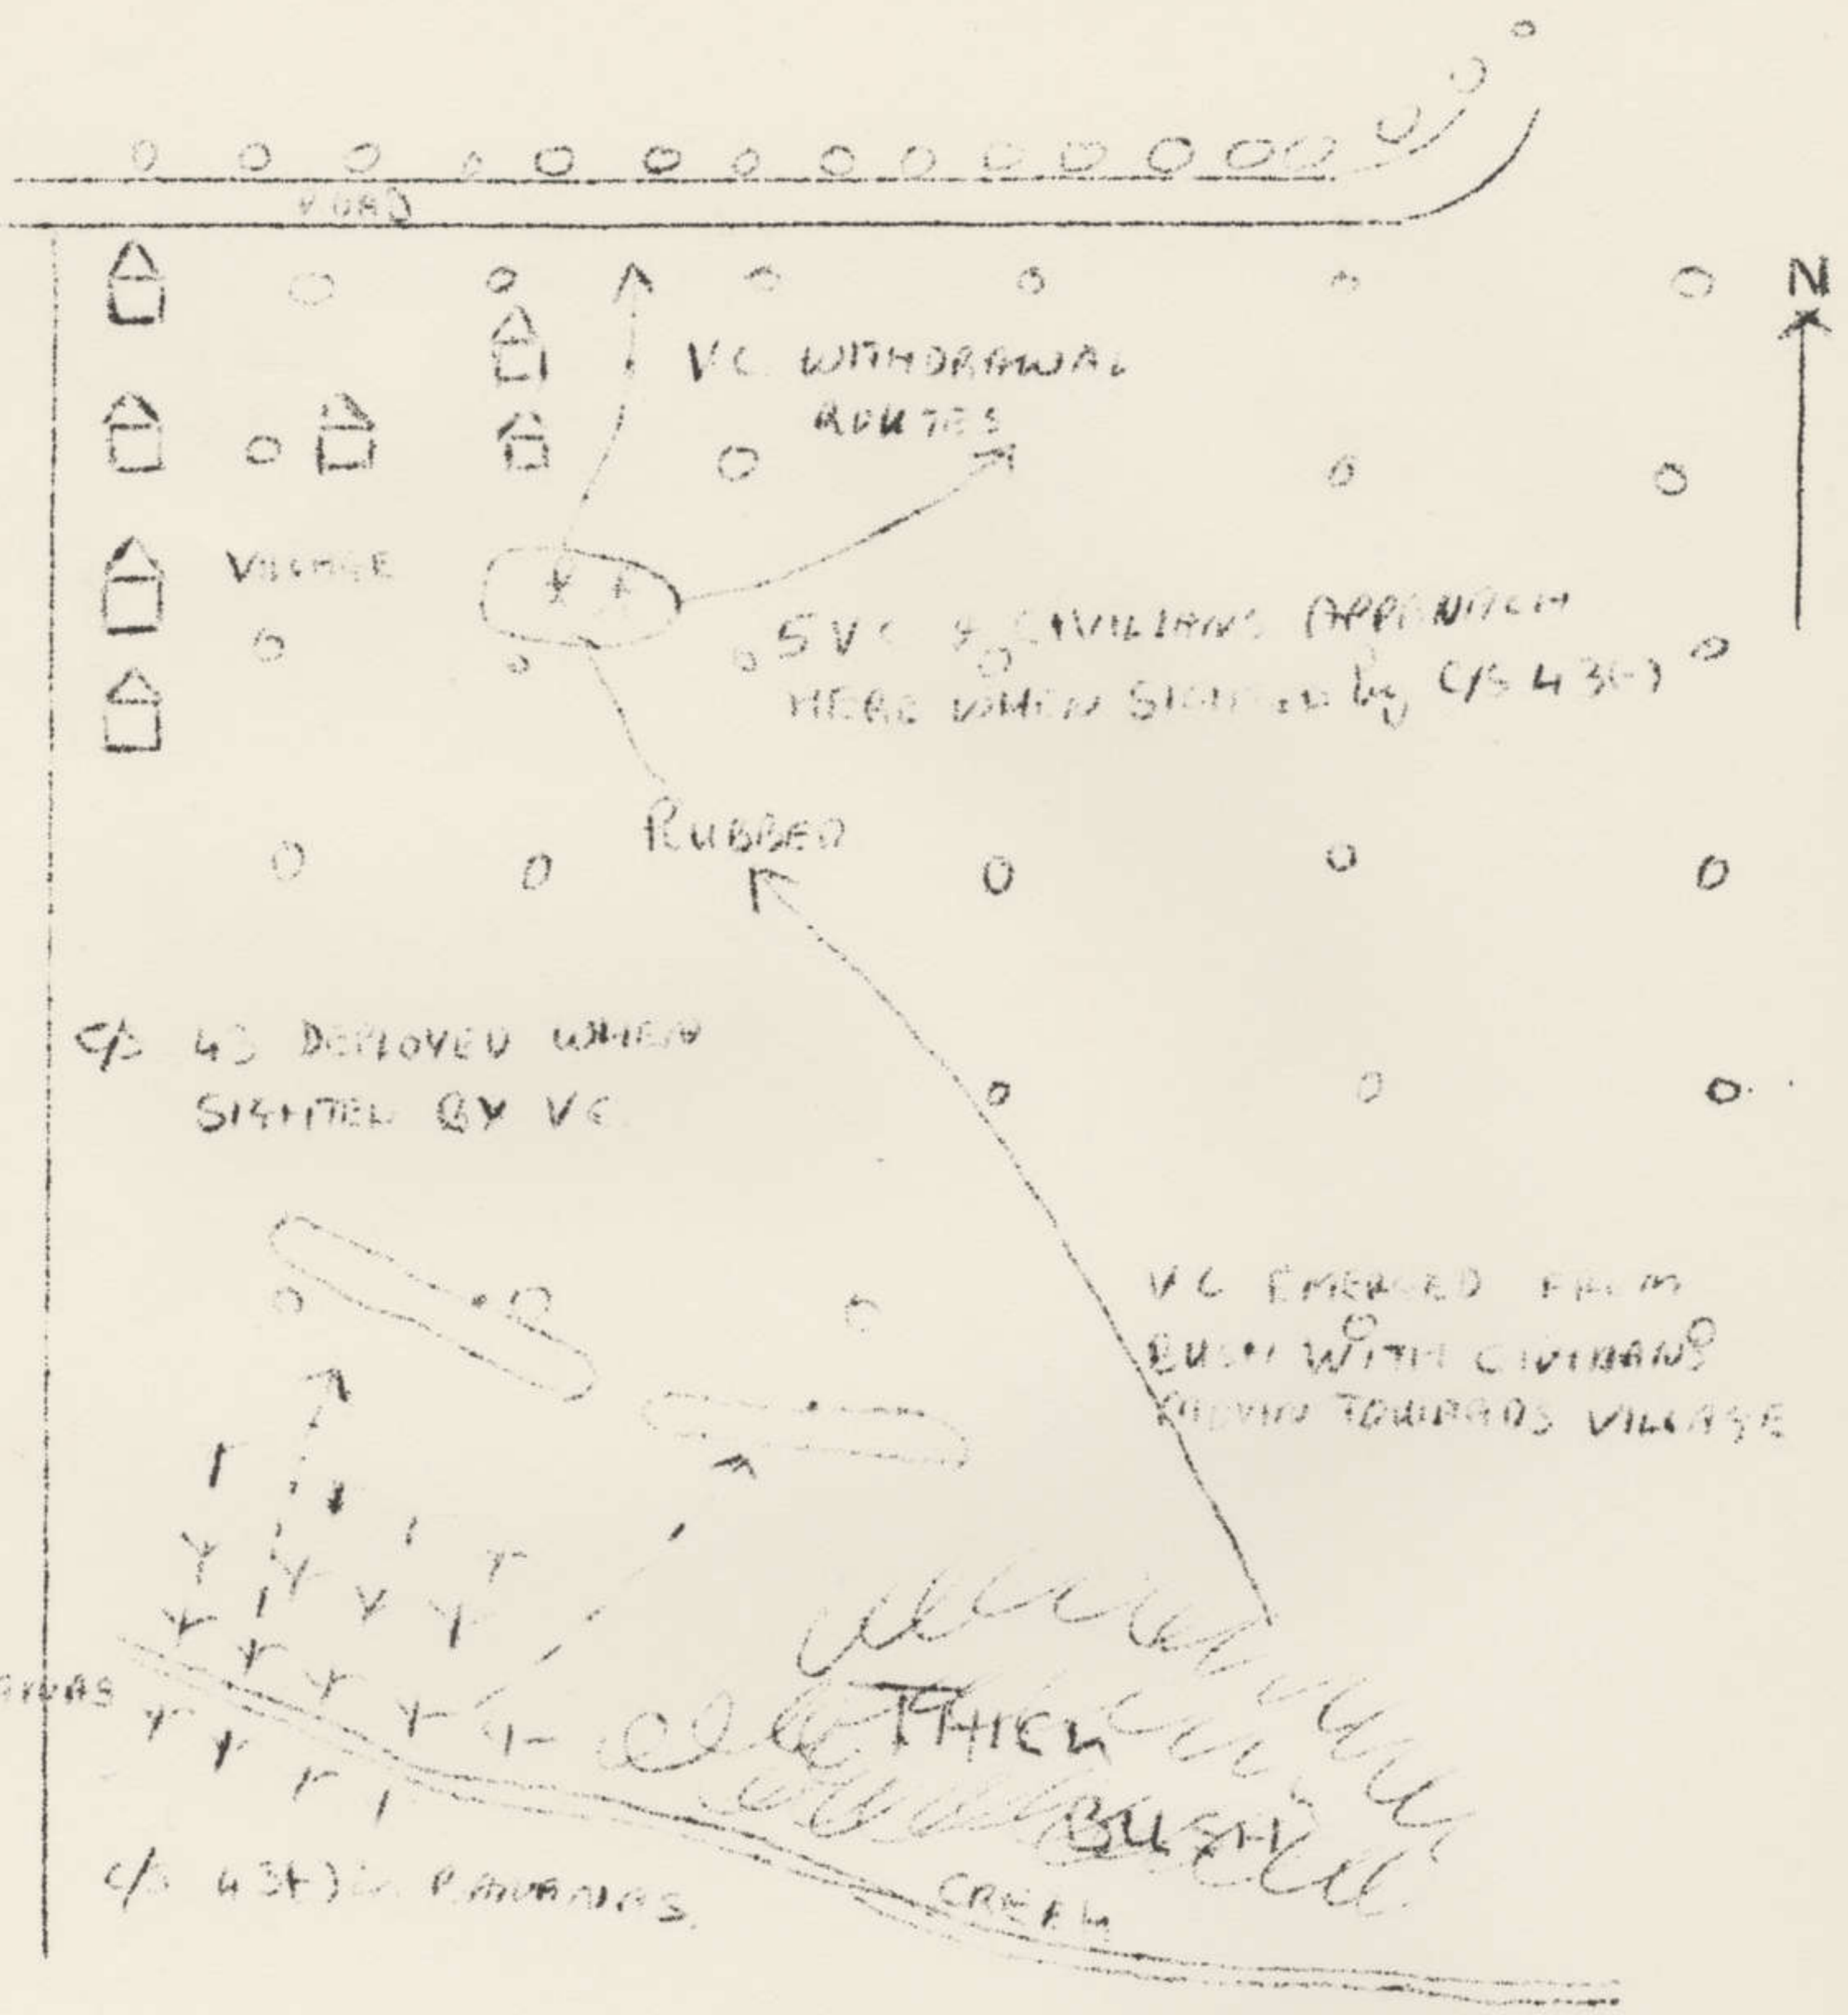 ROAD
N
VC WITHDRAWAL
ROUTES
VILLAGE
5 VC & CIVILIANS APPROACH
HERE WHEN SIGHTED by C/S 43(-)
RUBBER
C/S 43 DEPLOYED WHEN
SIGHTED BY VC
VC EMERGED FROM
BUSH WITH CIVILIANS
TOWARDS VILLAGE
THICK
BUSH
C/S 43(-) in BANANAS
CREEK